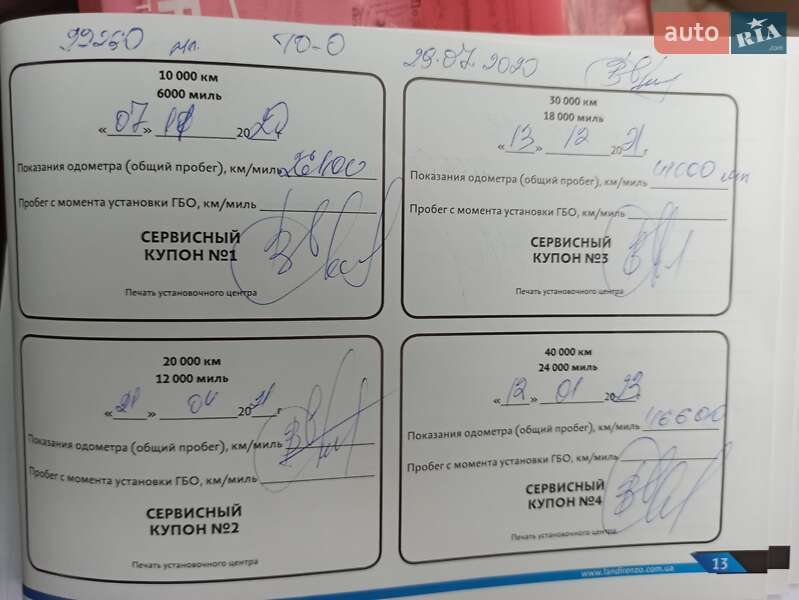 auto RIA .com
99260 мл. ТО-0 29.07.2020
10 000 км
6000 миль
«07» 11 2020
Показания одометра (общий пробег), км/миль
Пробег с момента установки ГБО, км/миль
СЕРВИСНЫЙ
КУПОН №1
Печать установочного центра
30 000 км
18 000 миль
«13» 12 2021г.
Показания одометра (общий пробег), км/миль
Пробег с момента установки ГБО, км/миль
СЕРВИСНЫЙ
КУПОН №3
Печать установочного центра
20 000 км
12 000 миль
«21» 04 2021г.
Показания одометра (общий пробег), км/миль
Пробег с момента установки ГБО, км/миль
СЕРВИСНЫЙ
КУПОН №2
Печать установочного центра
40 000 км
24 000 миль
«12» 01 2023
Показания одометра (общий пробег), км/миль 46600
Пробег с момента установки ГБО, км/миль
СЕРВИСНЫЙ
КУПОН №4
Печать установочного центра
www.landirenzo.com.ua 13